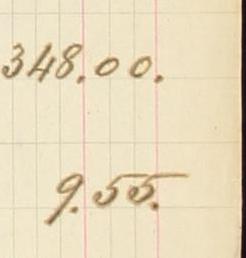 348.00.
9.55.